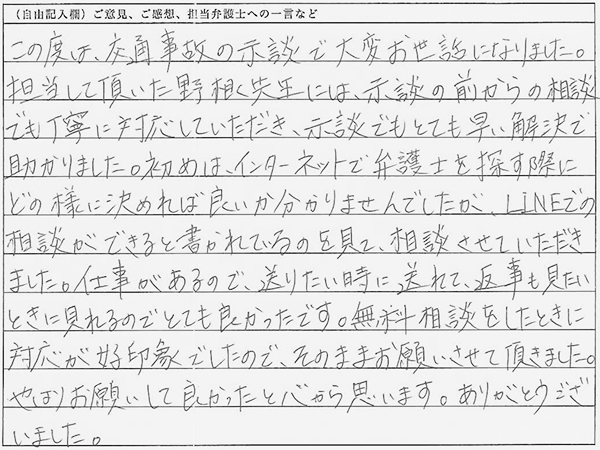 (自由記入欄)ご意見、ご感想、担当弁護士への一言など
この度は、交通事故の示談で大変お世話になりました。
担当して頂いた野根先生には、示談の前からの相談
でも丁寧に対応していただき、示談でもとても早い解決で
助かりました。初めは、インターネットで弁護士を探す際に
どの様に決めれば良いか分かりませんでしたが、LiNEでの
相談ができると書かれているのを見て、相談させていただき
ました。仕事があるので、送りたい時に送れて、返事も見たい
ときに見れるのでとても良かったです。無料相談をしたときに
対応が好印象でしたので、そのままお願いさせて頂きました。
やはりお願いして良かったと心から思います。ありがとうござ
いました。